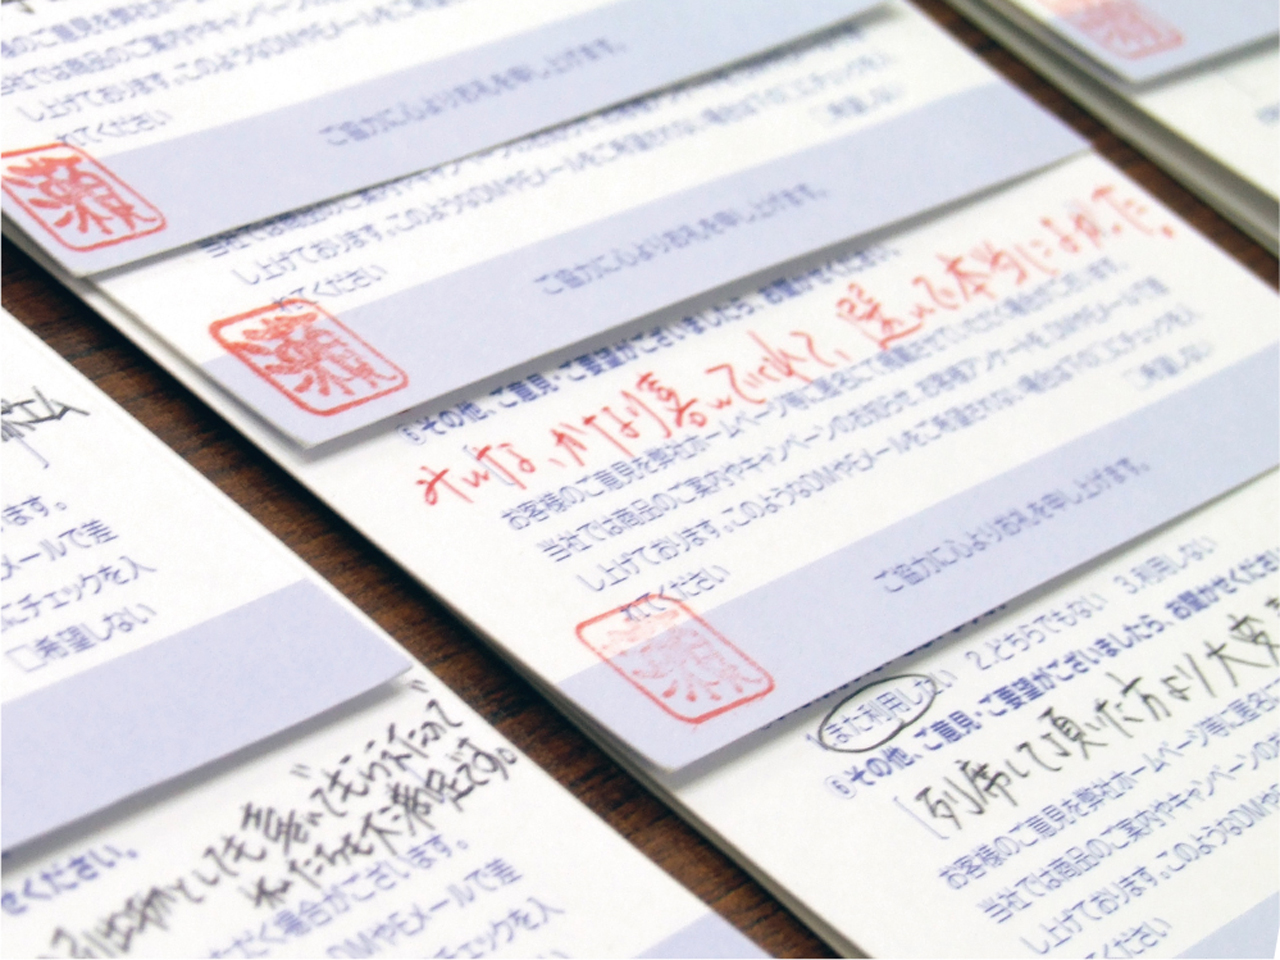 様のご意見を弊社ホー
当社では商品のご案内やキャンペーン
し上げております。このようなDMやEメールをご
れてください
ご協力に心よりお礼を申し上げます。
当社では商品のご案内やキャン
し上げております。このようなDMやEメールをご希望されない場合は下の□にチェックを入
れてください
□希望しない
ご協力に心よりお礼を申し上げます。
⑥その他、ご意見・ご要望がございましたら、お聞かせください。
みんな、かなり喜んでくれて、選んで本当によかった。
お客様のご意見を弊社ホームページ等に匿名にて掲載させていただく場合がございます。
当社では商品のご案内やキャンペーンのお知らせ、お客様アンケートを、DMやEメールで差
し上げております。このようなDMやEメールをご希望されない場合は下の□にチェックを入
れてください
□希望しない
ご協力に心よりお礼を申し上げます。
1.また利用したい 2.どちらでもない 3.利用しない
⑥その他、ご意見・ご要望がございましたら、お聞かせくださ
列席して頂いた方より大変
お客様のご意見を弊社ホームページ等に匿名に
当社では商品のご案内やキャンペーンのお
し上げております。このようなDMやEメ
れてください
ます。
メールで差
にチェックを入
□希望しない
せください。
引出物としても喜んでもらえたので
わたしたちも大満足です。
ただく場合がございます。
DMやEメールで差
チェックを入